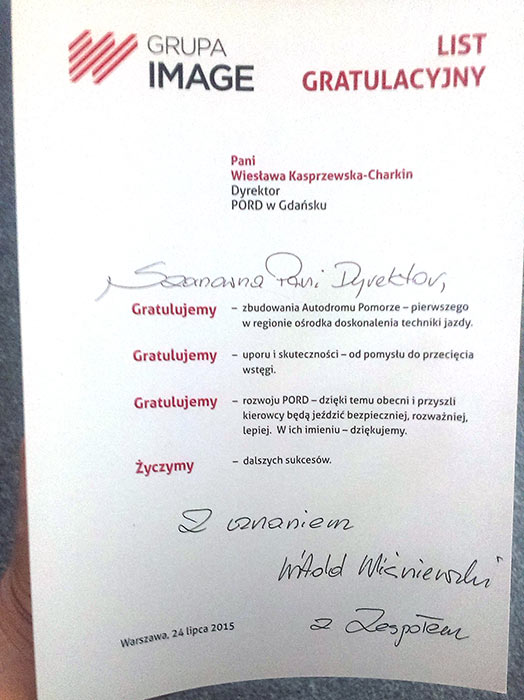 GRUPA
IMAGE
LIST
GRATULACYJNY
Pani
Wiesława Kasprzewska-Charkin
Dyrektor
PORD w Gdańsku
Szanowna Pani Dyrektor,
Gratulujemy – zbudowania Autodromu Pomorze – pierwszego
w regionie ośrodka doskonalenia techniki jazdy.
Gratulujemy – uporu i skuteczności – od pomysłu do przecięcia
wstęgi.
Gratulujemy – rozwoju PORD – dzięki temu obecni i przyszli
kierowcy będą jeździć bezpieczniej, rozważniej,
lepiej. W ich imieniu – dziękujemy.
Życzymy – dalszych sukcesów.
Z uznaniem
Witold Wiśniewski
z Zespołem
Warszawa, 24 lipca 2015